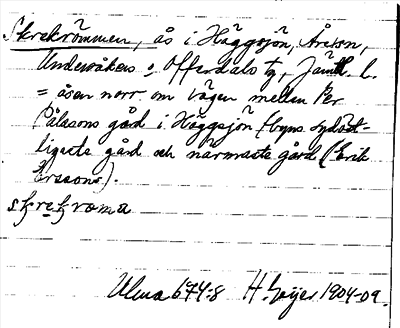 Skrekrömmen, ås i Häggsjön, Åresn,
Undersåkers o. Offerdals tg, Jämtl. l.
= åsen norr om vägen mellan Per
Pålssons gård i Häggsjön (byns sydöst-
ligaste gård och närmaste gård (Erik
Erssons).
Ulma 674:8 H. Geijer 1904-09.